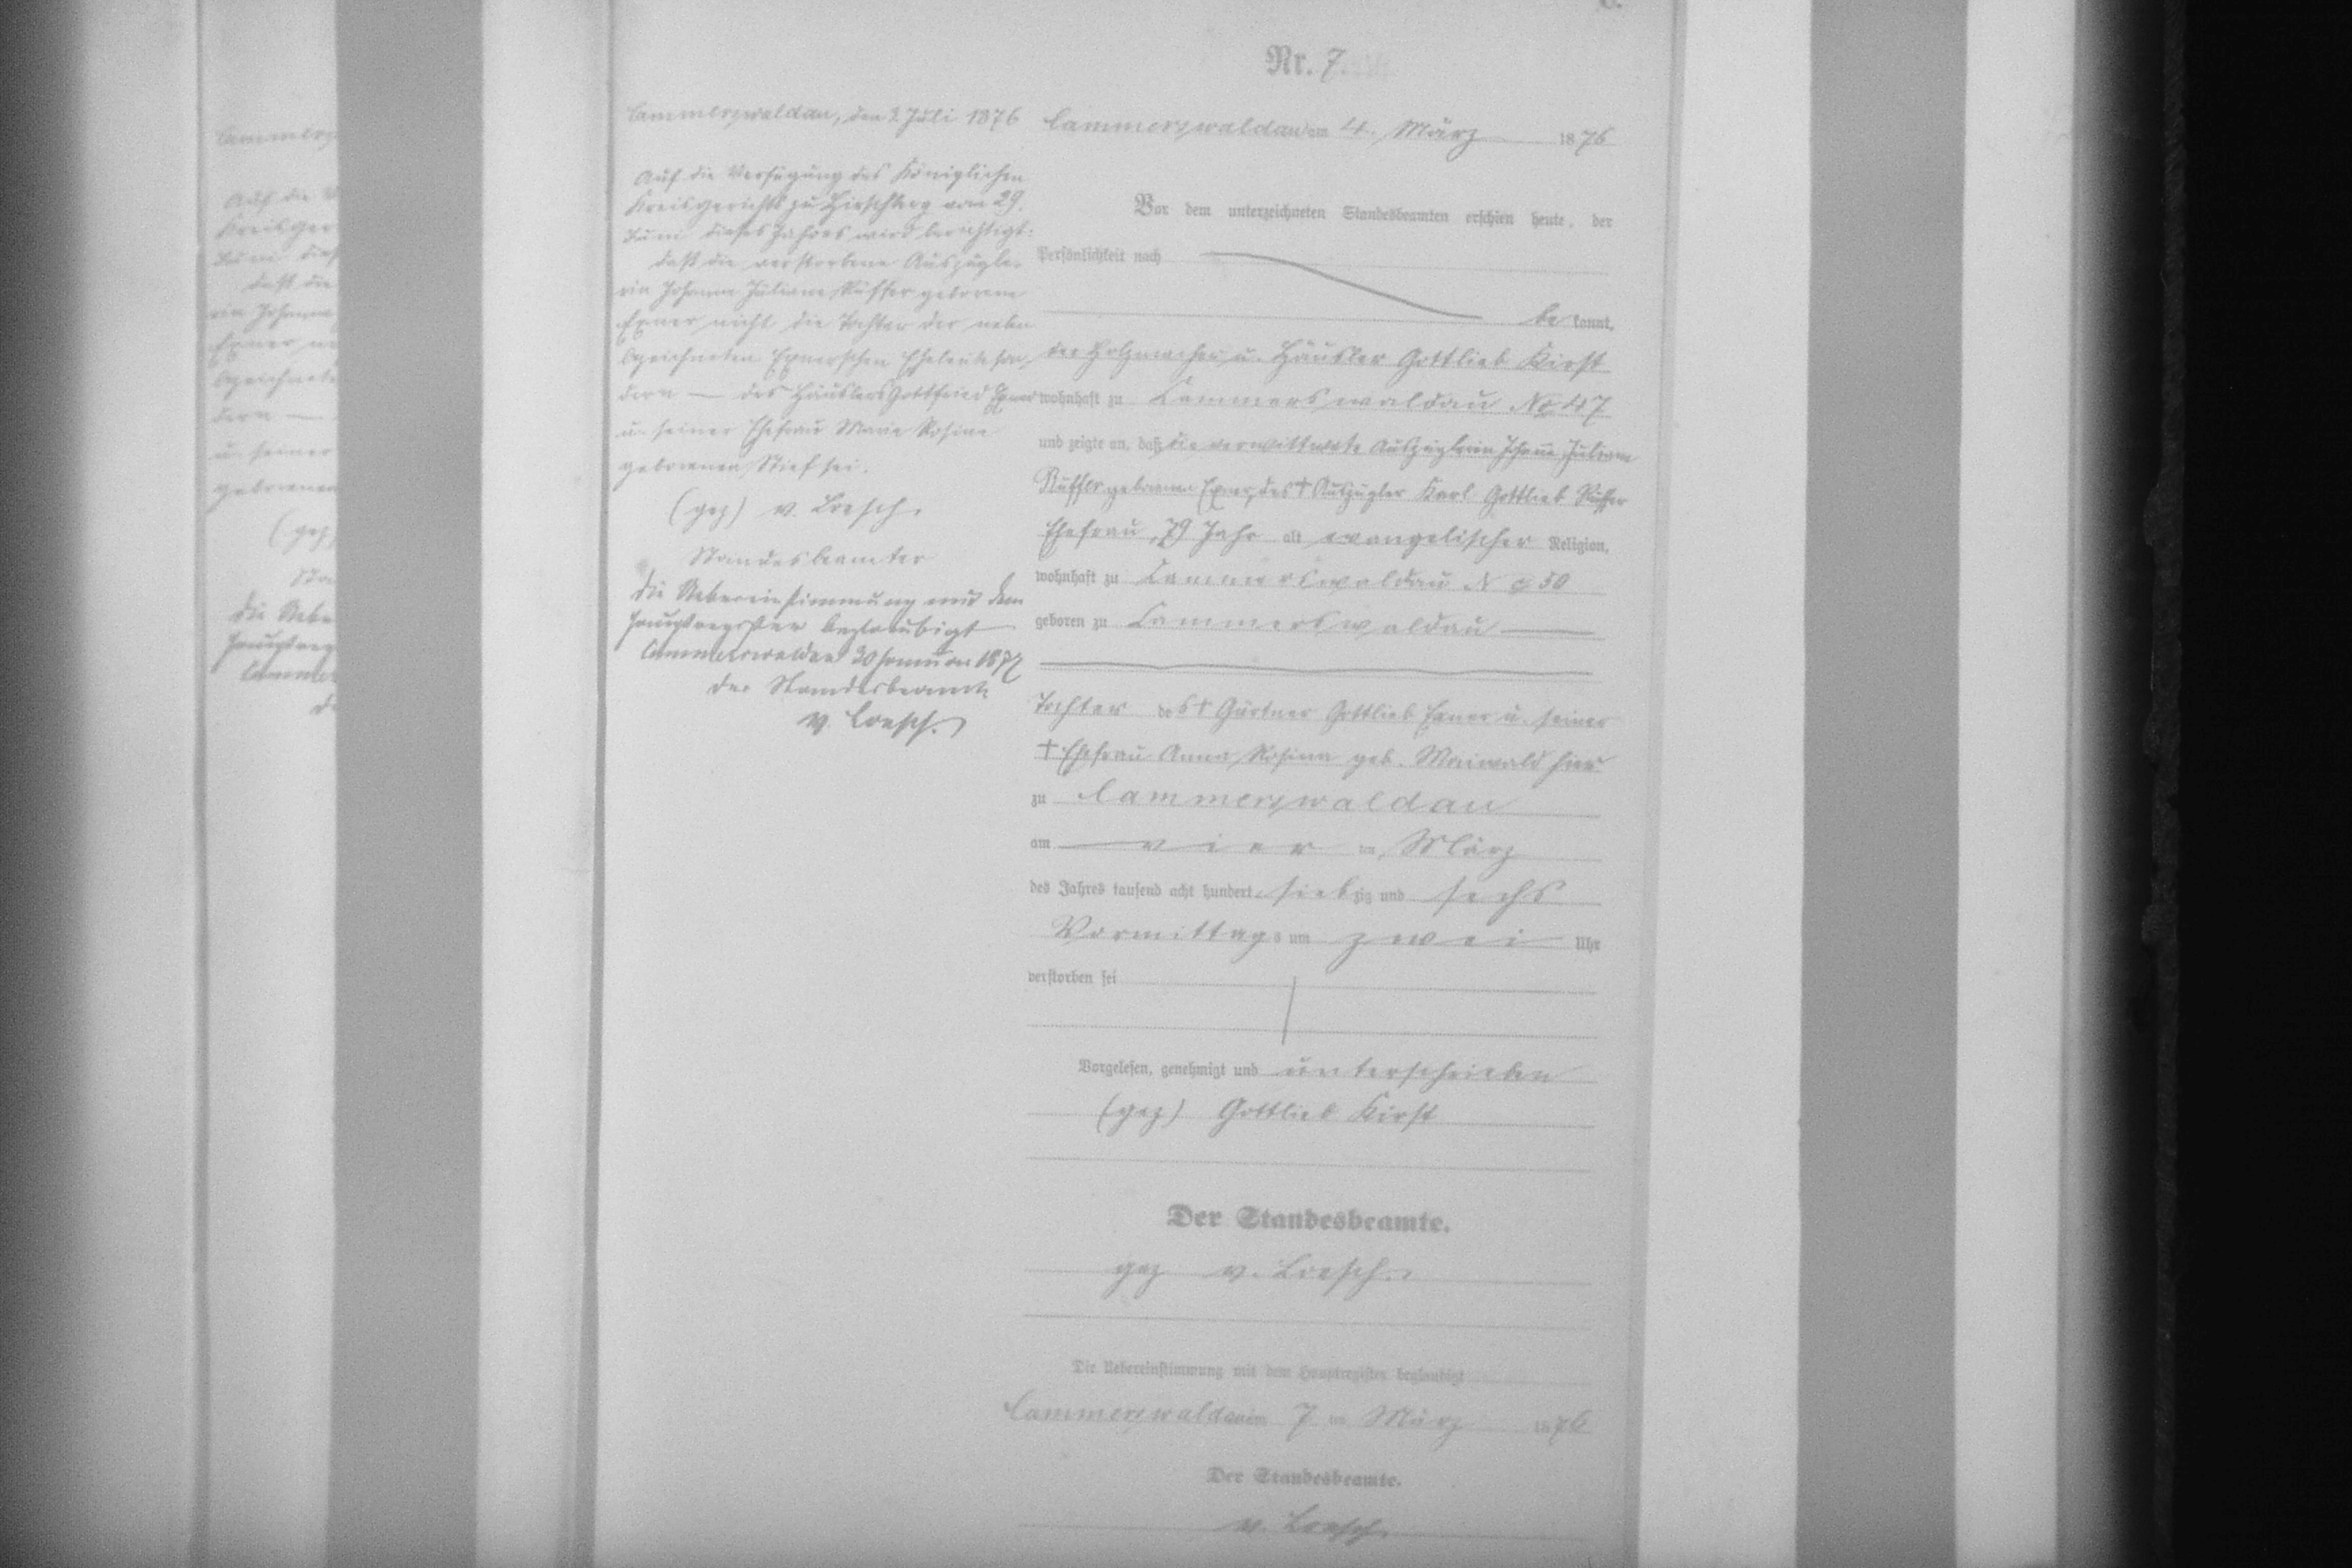 Nr. 7.
Cammerswaldau, den 2. Juli 1876
Auf die Verfügung des Königlichen
Kreisgerichts zu Hirschberg vom 29.
Juni dieses Jahres wird berichtigt:
daß die verstorbene Auszügle-
rin Johanne Juliane Küffer geborene
Exner nicht die Tochter der neben
bezeichneten Exnerschen Eheleute son-
dern — des Häuslers Gottfried Exner
u. seiner Ehefrau Marie Rosine
geborenen Stief sei.
(gez) v. Loesch.
Standesbeamter
Die Uebereinstimmung mit dem
Hauptregister beglaubigt
Cammerswaldau 20 Januar 1877
Der Standesbeamte
v. Loesch.
Cammerswaldau am 4. März 1876
Vor dem unterzeichneten Standesbeamten erschien heute, der
Persönlichkeit nach
be kannt,
der Holzmacher u. Häusler Gottlieb Kirst
wohnhaft zu Cammerswaldau No 47
und zeigte an, daß die verwittwete Auszüglerin Johanne Juliane
geborene Exner, des † Auszügler Karl Gottlieb
Ehefrau, 79 Jahr alt evangelischer Religion,
wohnhaft zu Cammerswaldau No 50
geboren zu Cammerswaldau
Tochter des † Gärtner Gottlieb Exner u. seiner
† Ehefrau Anna Rosina geb. Maiwald hier
zu Cammerswaldau
am vier ten März
des Jahres tausend acht hundert sieb zig und sechs
Vormittags um zwei Uhr
verstorben sei
Vorgelesen, genehmigt und unterschrieben
(gez) Gottlieb Kirst
Der Standesbeamte.
gez v. Loesch.
Die Uebereinstimmung mit dem Hauptregister beglaubigt
Cammerswaldau am 7 ten März 1876
Der Standesbeamte.
v. Loesch.